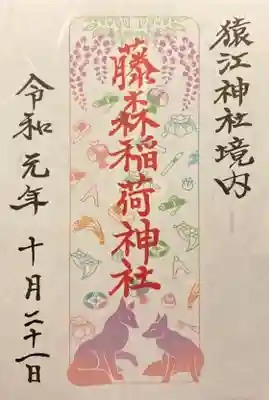 猿江神社境内
藤森稲荷神社
令和元年 十月二十一日